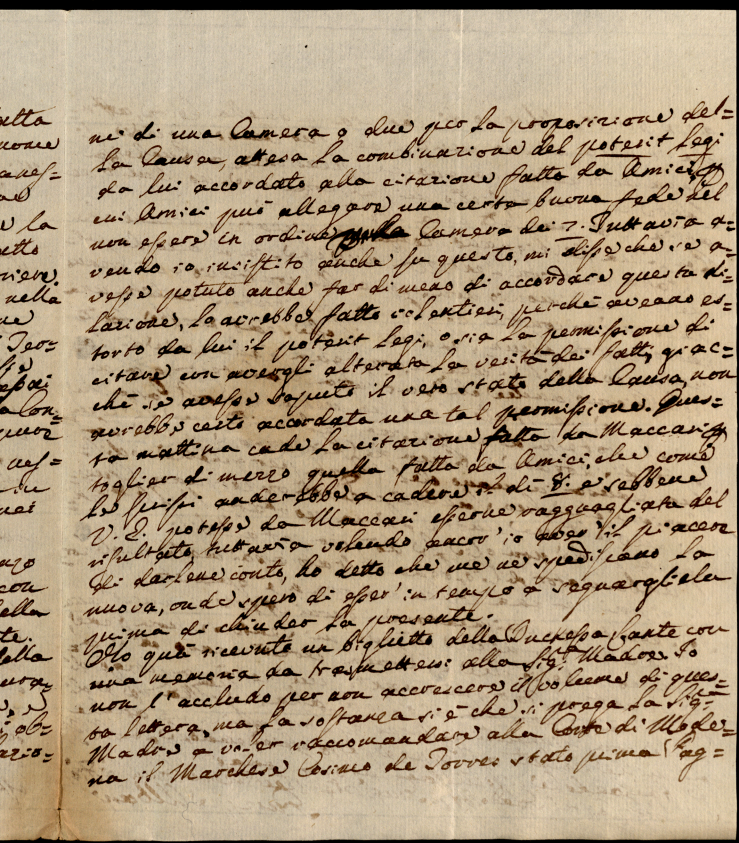 atta
nome
anes=
e la
etto
riever.
nella
ne
Teo=
a Con=
nes=
con
ella
te.
della
ob=
ario=
ni di una Camera o due per la proposizione del=
la Causa, attesa la combinazione del poterit Legi
da lui accordato alla citazione fatta da Amici,
cui Amici può allegare una certa buona fede del
non essere in ordine Camera dei 7. Tuttavia a=
vendo io insistito anche su questo, mi disse che se a=
vesse potuto anche far di meno di accordare questa di=
lazione, l'avrebbe fatto volentieri, perchè aveano es=
torto da lui il poterit Legi, o sia la permissione di
citare con avergli alterata la verità dei fatti, giac=
chè se avesse saputo il vero stato della Causa, non
avrebbe certo accordata una tal permissione. Ques=
ta mattina cade la citazione fatta da Maccari
toglier di mezzo quella fatta da Amici, che come
le scrissi anderebbe a cadere di 8. e sebbene
V. E. potesse da Maccari esserne ragguagliata del
risultato, tuttavia volendo ancor' io aver' il piacere
di darlene conto, ho detto che me ne spediscano la
nuova, onde spero di esser' in tempo a
prima di chiuder la presente.
Ho quà ricevuto un biglietto della Duchessa Lante con
una memoria da trasmettersi alla Sig.ra Madre. Io
non l'accludo per non accrescere il volume di ques=
ta lettera, ma la sostanza si è che si prega la Sig.=
Madre a voler raccomandare alla Corte di Mode=
na il Marchese Cosimo de Torres stato prima Pag=